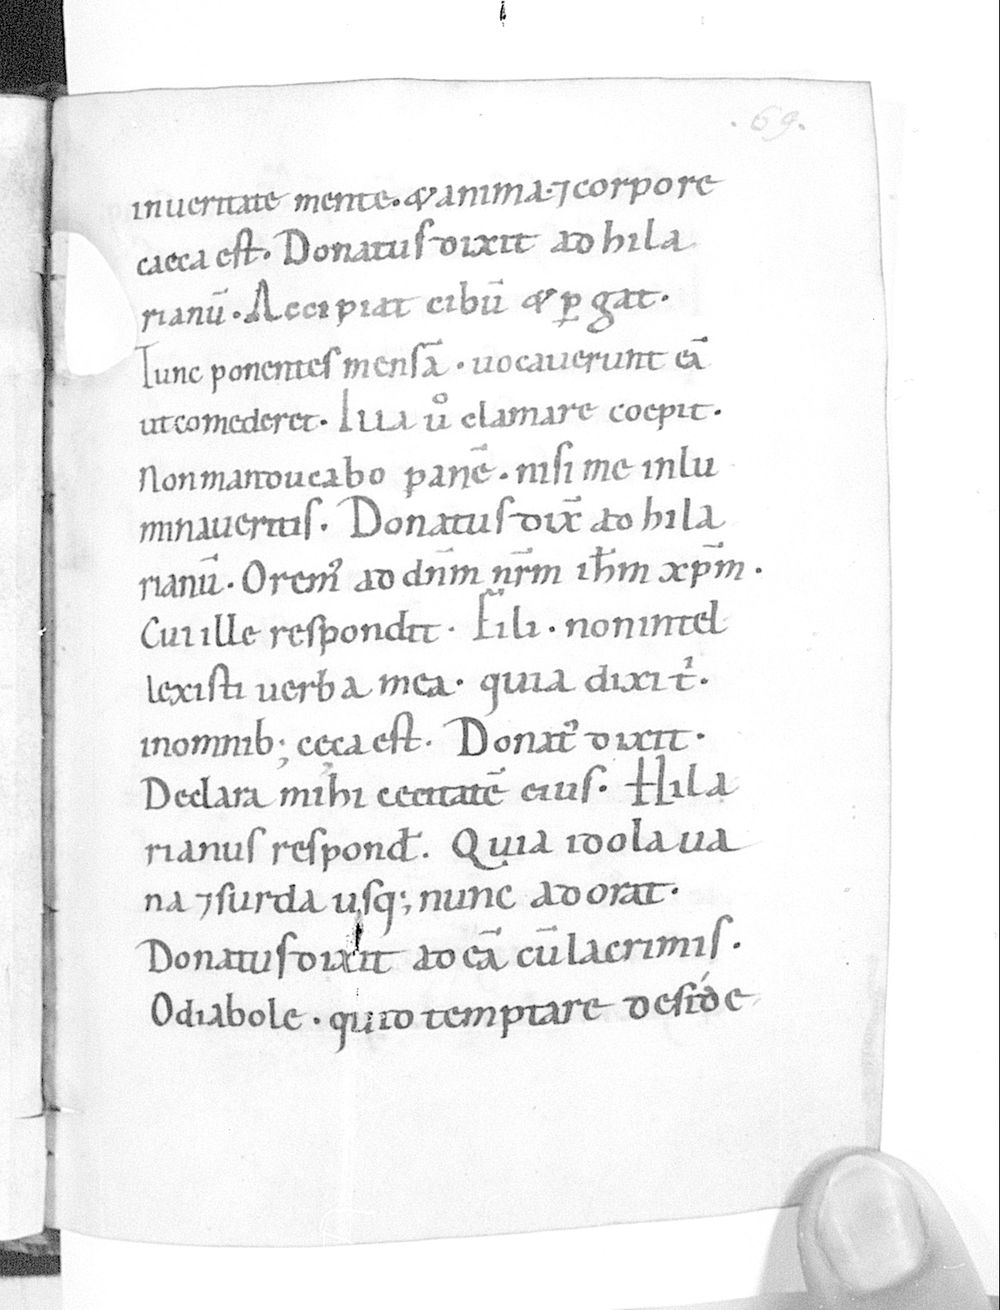 .69.
inueritate mente. & anima. ⁊ corpore
caeca est. Donatus dixit ad hila
rianū. Accipiat cibū & ꝑgat.
Tunc ponentes mensā. uocauerunt eā
ut comederet. Illa ů clamare coepit.
Non manducabo panē. nisi me inlu
minaueritis. Donatus dix̄ ad hila
rianū. Orem᾿ ad dn̄m nr̄m ihm̄ xp̄m.
Cui ille respondit. Fili. non intel
lexisti uerba mea. quia dixi t᾿.
inomnib; cęca est. Donat᾿ dixit.
Declara mihi cecitatē eius. Hila
rianus respond̄. Quia idola ua
na ⁊ surda usq; nunc adorat.
Donatus dixit ad eā cū lacrimis.
O diabole. quid temptare deside